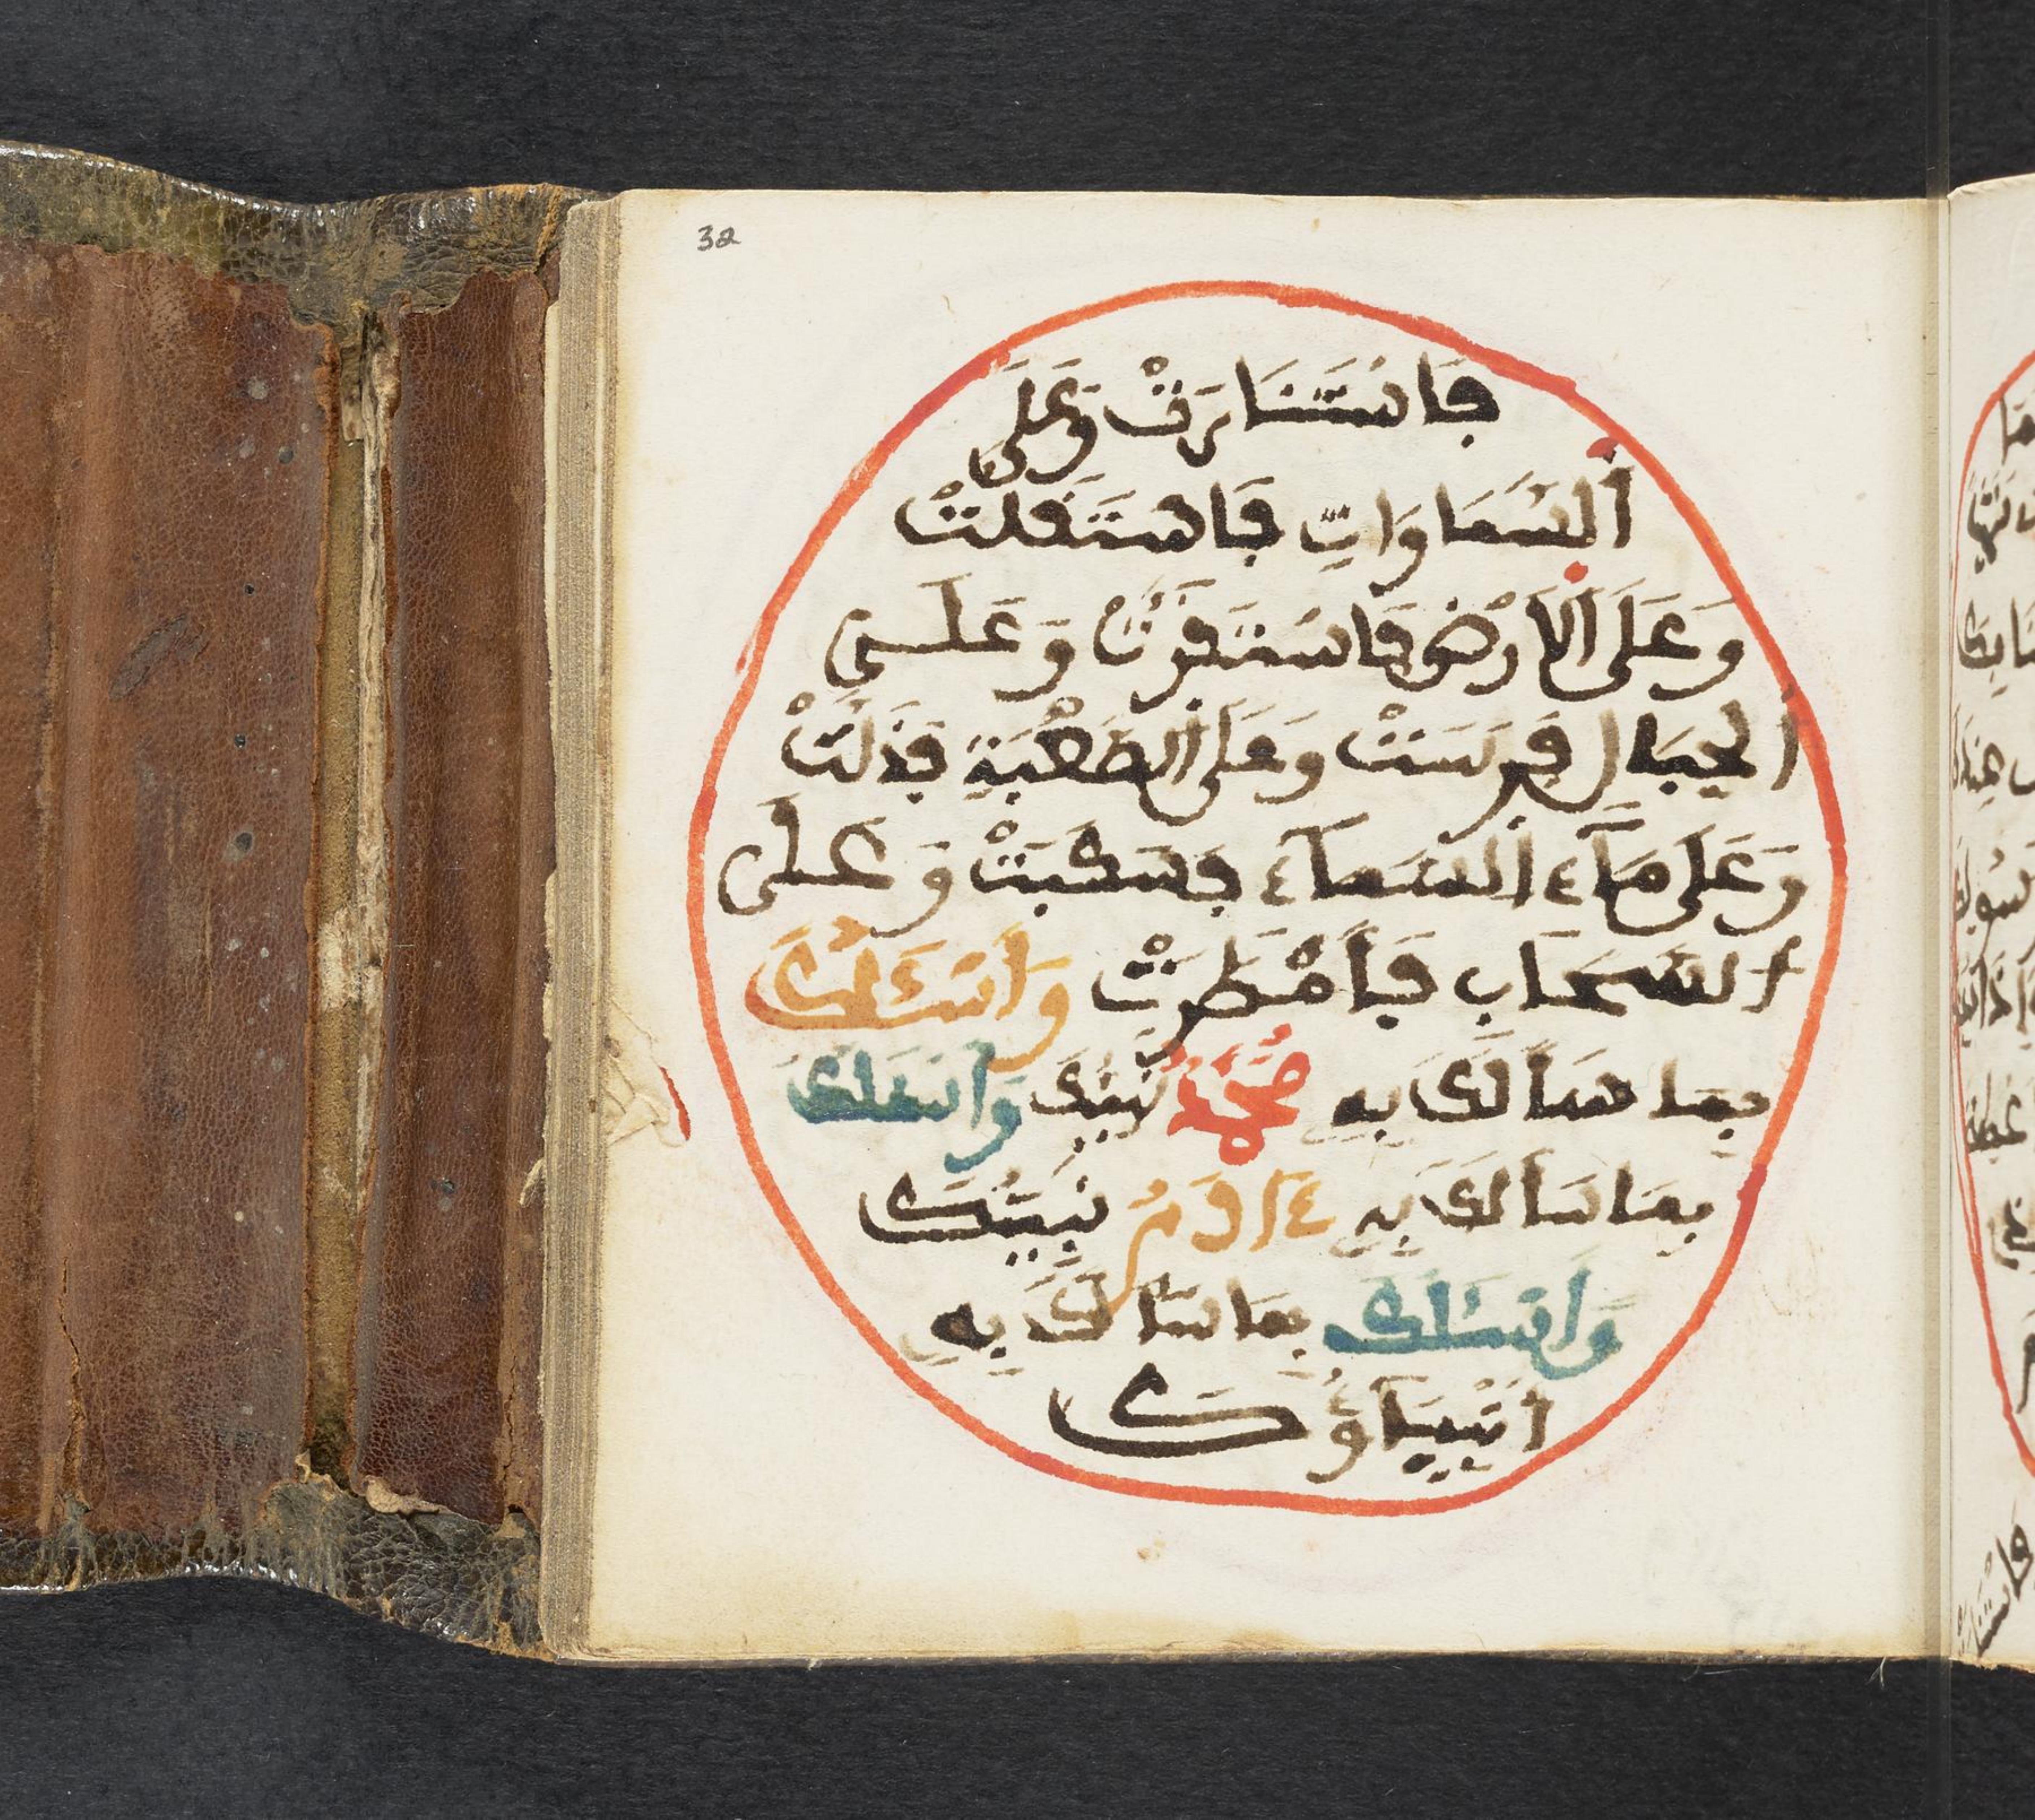 32
فَاسْتَنَارَتْ وَعَلَى
اَلسَّمَاوَاتِ فَاسْتَقَلَتْ
وَعَلَى اَلاَرْضِ فَاسْتَقَرَّتْ وَعَلَى
اَلجِبَالِ فَرَسَتْ وَعَلَى اَلصَّعْبَةِ فَذَلَّتْ
وَعَلَى مَآءِ اَلسَّمَآءِ فَسَكَبَتْ وَعَلَى
السَّحَابِ فَأَمْطَرَتْ وَأَسْـَٔلُكَ
بِمَا سَأَلَكَ بِهِ مُحَمَّدٌ نَبِيُّكَ وَأَسْـَٔلُكَ
بِمَا سَأَلَكَ بِهِ ءَادَمُ نَبِيُّكَ
وَأَسْـَٔلُكَ بِمَا سَأَلَكَ بِهِ
اَنْبِيَاؤُكَ